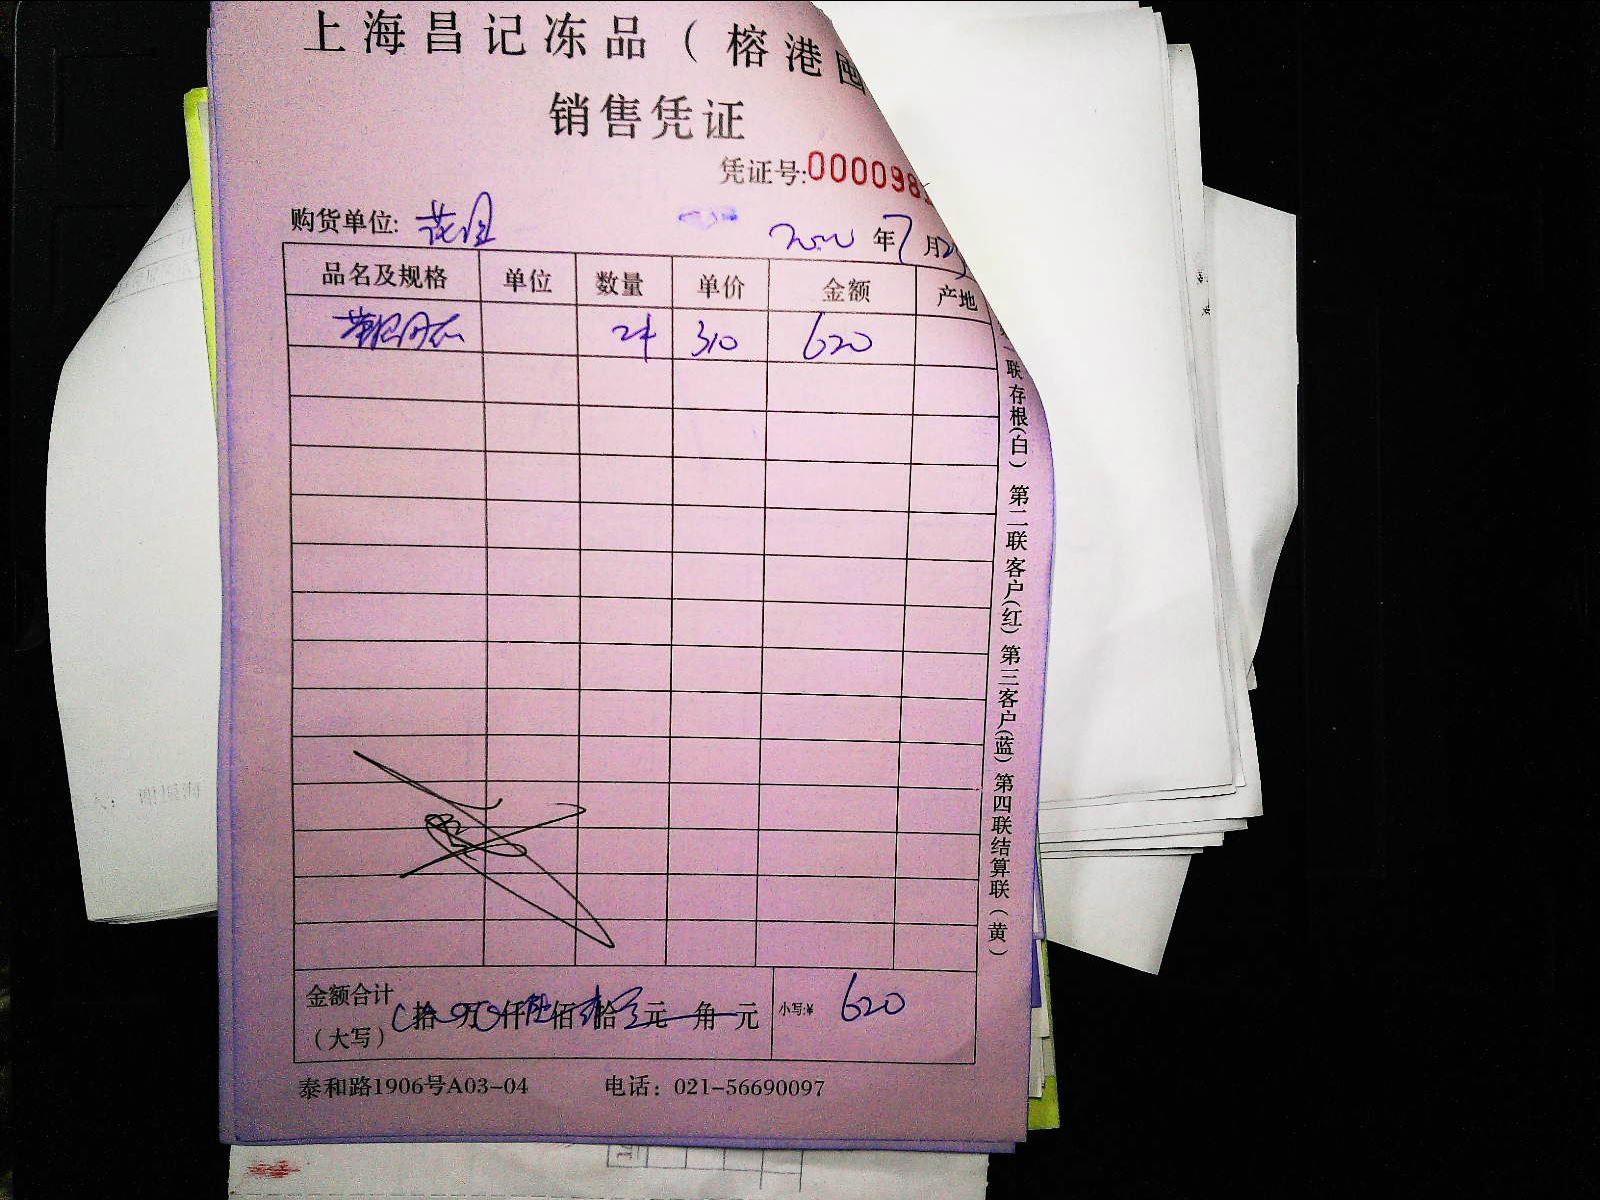 上海昌记冻品（榕港
销售凭证
凭证号:000098
购货单位: 花园
年7月
品名及规格 单位 数量 单价 金额 产地
2件 310 620
联存根(白) 第二联客户(红) 第三客户(蓝) 第四联结算联(黄)
金额合计
(大写) 拾 万 仟 陆佰 拾 元 角 元 小写:¥ 620
泰和路1906号A03-04 电话：021-56690097